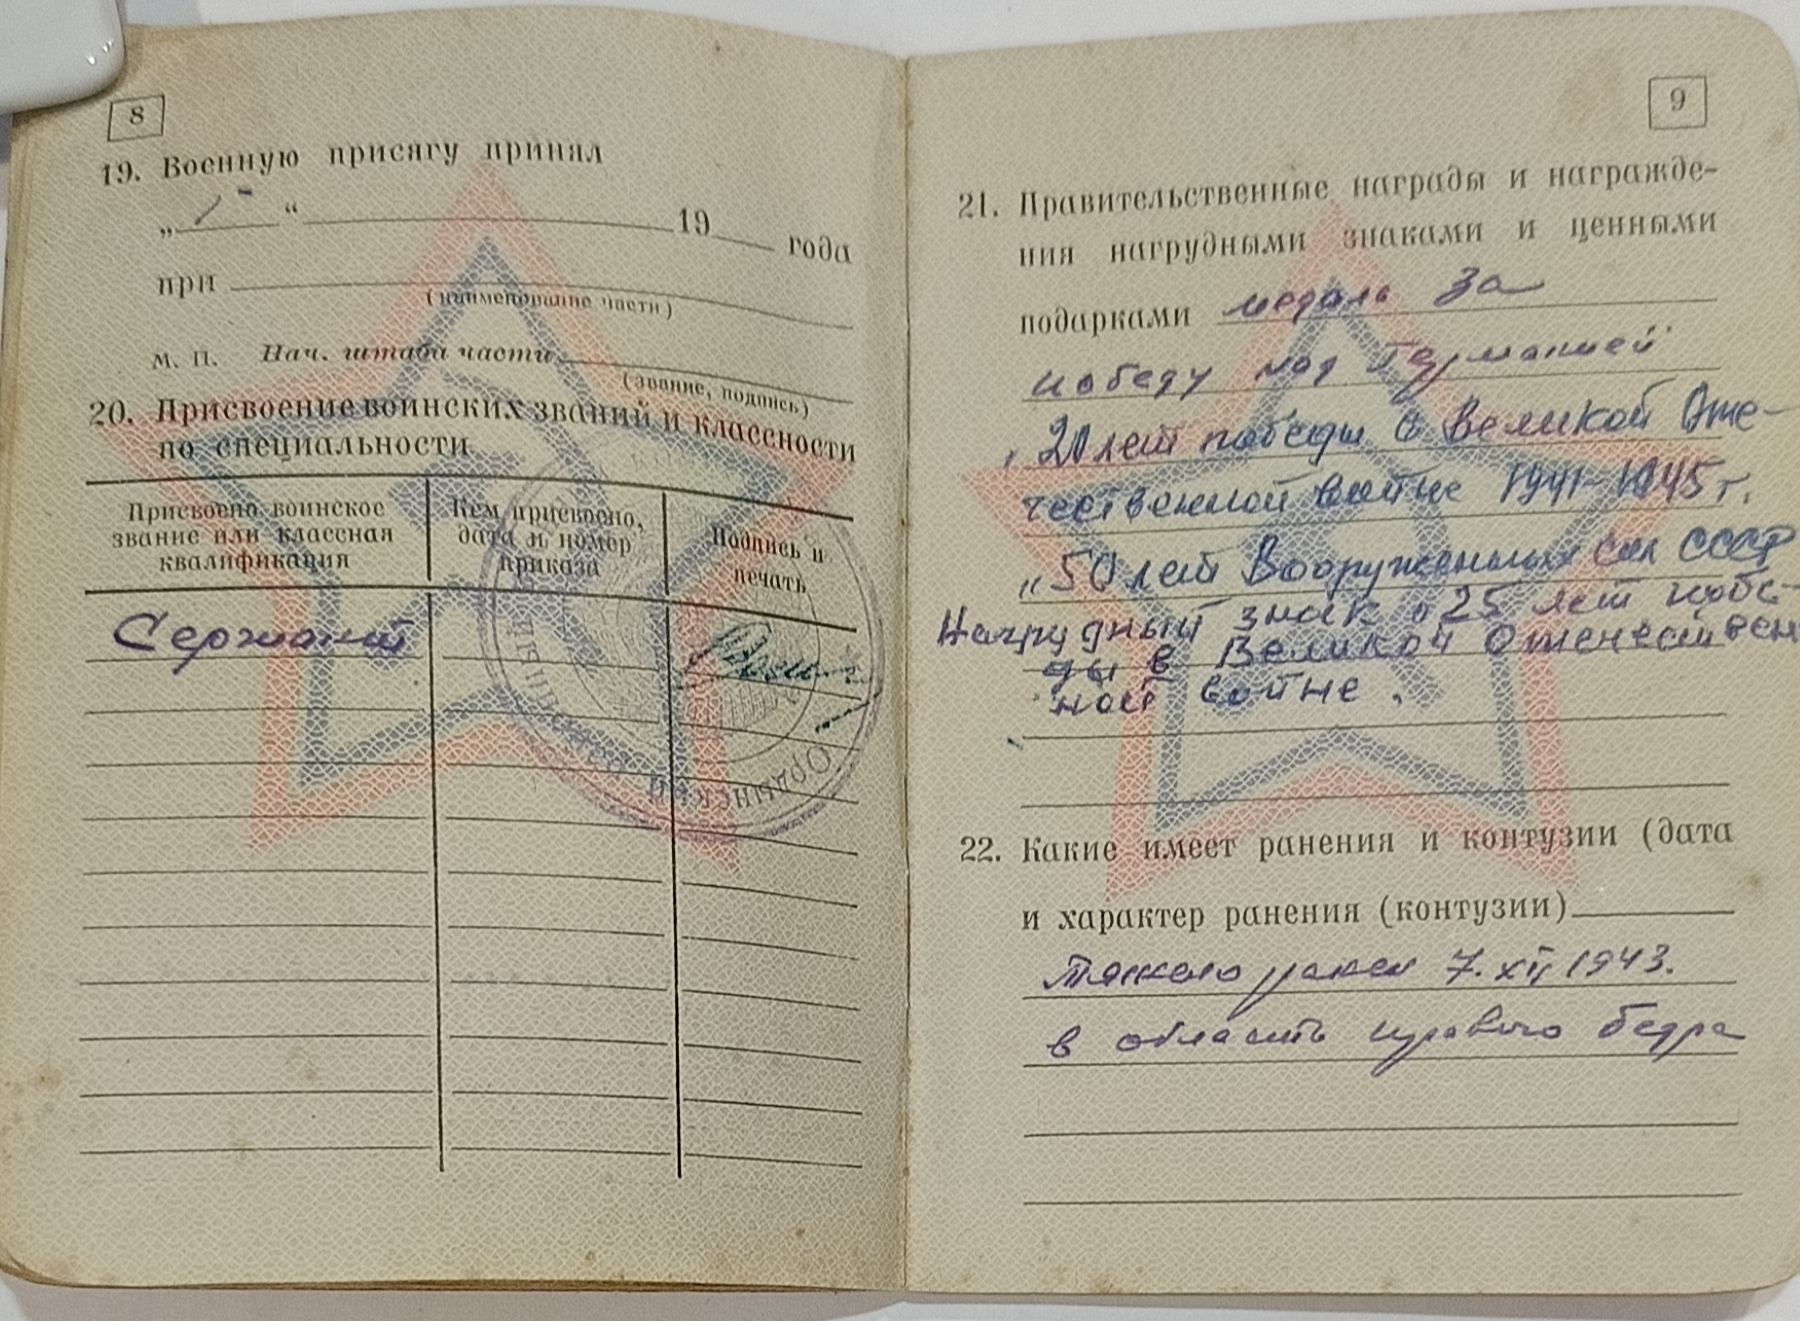 8
19. Военную присягу принял
„ “ 19 года
при
(наименование части)
М. П. Нач. штаба части
(звание, подпись)
20. Присвоение воинских званий и классности
по специальности
Присвоено воинское
звание или классная
квалификация
Кем присвоено,
дата и номер
приказа
Подпись и
печать
Сержант
ОРДЫНСКИЙ
9
21. Правительственные награды и награжде-
ния нагрудными знаками и ценными
подарками медаль За
победу над Германией"
„20 лет победы в Великой Оте-
чественной войне 1941-1945 г.
„50 лет Вооруженных сил СССР
Нагрудный знак „25 лет побе-
ды в Великой Отечествен
ной войне.
22. Какие имеет ранения и контузии (дата
и характер ранения (контузии)
Тяжело ранен 7.XII 1943.
в область правого бедра